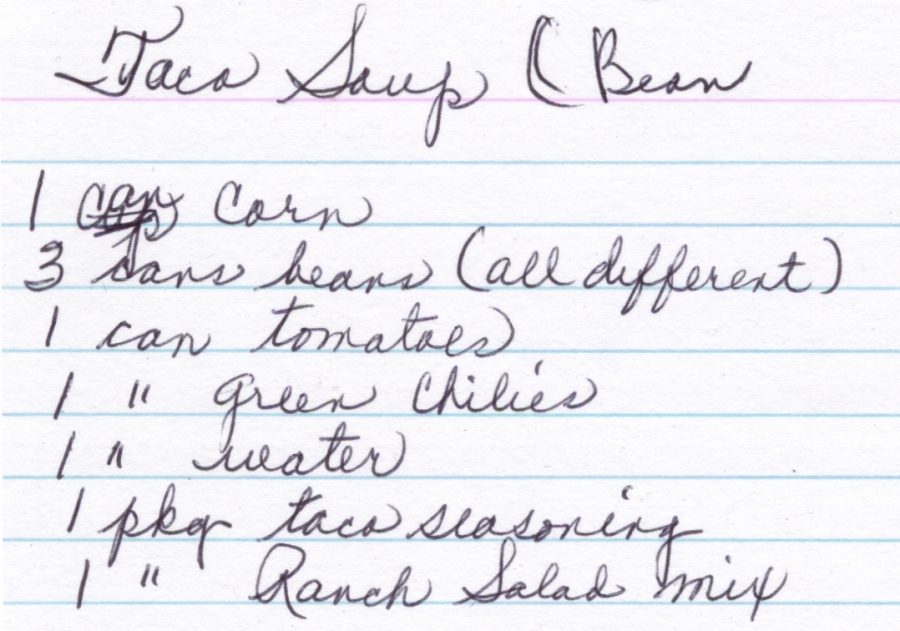 Taco Soup (Bean
1 can corn
3 cans beans (all different)
1 can tomatoes
1 " Green Chilies
1 " water
1 pkg taco seasoning
1 " Ranch Salad mix